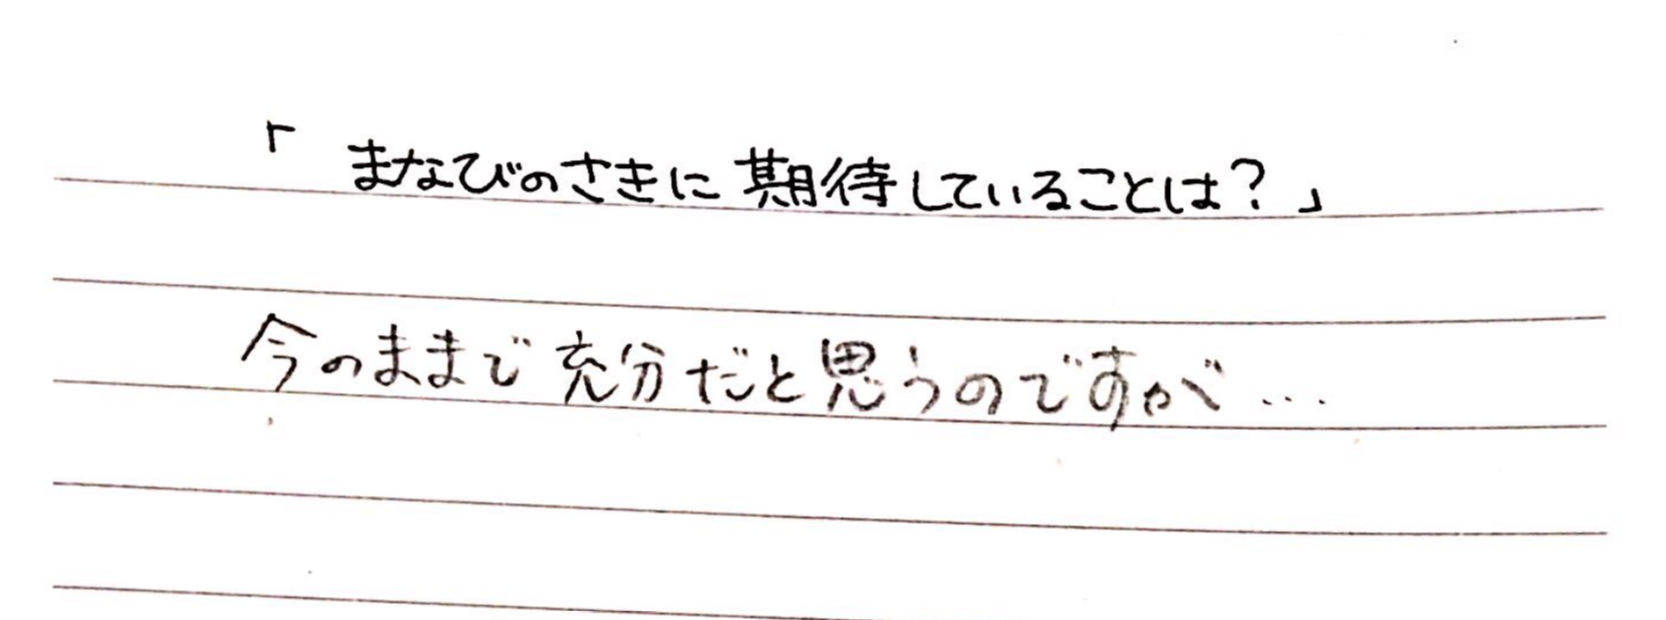 「まなびのさきに期待していることは?」
今のままで充分だと思うのですが…